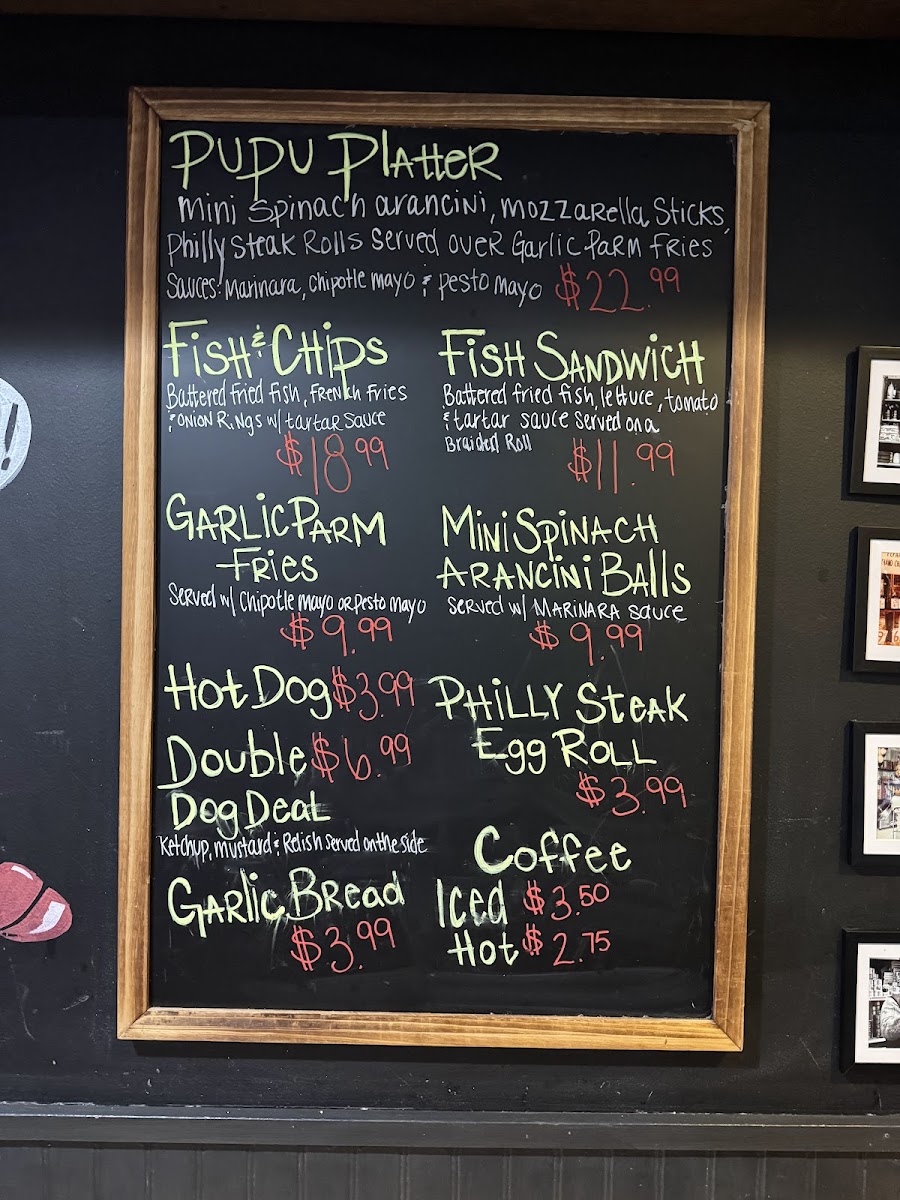 PUPU PLAtteR
Mini Spinach arancini, Mozzarella Sticks,
Philly Steak Rolls Served over Garlic Parm Fries
Sauces: Marinara, chipotle mayo & pesto mayo $22.99
Fish & Chips
Battered fried fish, French fries
& Onion Rings w/ tartar sauce
$18.99
Fish Sandwich
Battered fried fish, lettuce, tomato
& tartar sauce served on a
Braided Roll
$11.99
Garlic Parm
Fries
Served w/ Chipotle mayo or pesto mayo
$9.99
Mini Spinach
Arancini Balls
Served w/ Marinara sauce
$9.99
Hot Dog $3.99
Double $6.99
Dog Deal
Ketchup, mustard & Relish served on the side
Philly Steak
Egg Roll
$3.99
Garlic Bread
$3.99
Coffee
Iced $3.50
Hot $2.75